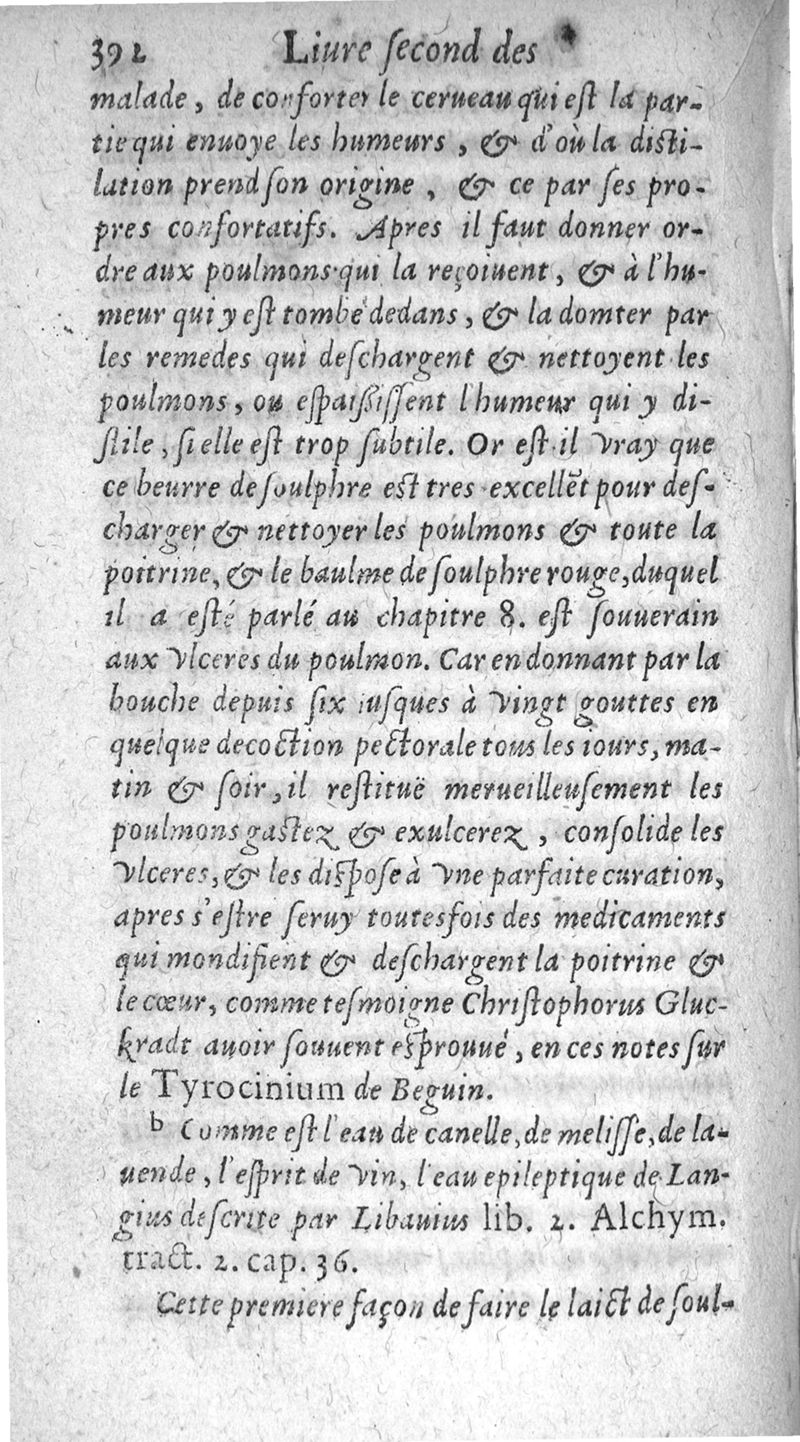 392 Liure ſecond des
malade, de conforter le cerueau qui eſt la par-
tie qui enuoye les humeurs, & d'où la diſti-
lation prend ſon origine, & ce par ſes pro-
pres confortatifs. Apres il faut donner or-
dre aux poulmons qui la reçoiuent, & à l'hu-
meur qui y eſt tombé dedans, & la domter par
les remedes qui deſchargent & nettoyent les
poulmons, ou eſpaiſſiſſent l'humeur qui y di-
ſtile, ſi elle eſt trop ſubtile. Or eſt-il vray que
ce beurre de ſoulphre eſt tres-excellẽt pour deſ-
charger & nettoyer les poulmons & toute la
poitrine, & le baulme de ſoulphre rouge, duquel
il a eſté parlé au chapitre 8. eſt ſouuerain
aux vlceres du poulmon. Car en donnant par la
bouche depuis ſix iuſques à vingt gouttes en
quelque decoction pectorale tous les iours, ma-
tin & ſoir, il reſtituë merueilleuſement les
poulmons gaſtez & exulcerez, conſolide les
vlceres, & les diſpoſe à vne parfaite curation,
apres s'eſtre ſeruy toutesfois des medicaments
qui mondifient & deſchargent la poitrine &
le cœur, comme teſmoigne Chriſtophorus Gluc-
kradt auoir ſouuent eſprouué, en ces notes ſur
le Tyrocinium de Beguin.
b Comme eſt l'eau de canelle, de meliſſe, de la-
uende, l'eſprit de vin, l'eau epileptique de Lan-
gius deſcrite par Libauius lib. 2. Alchym.
tract. 2. cap. 36.
Cette premiere façon de faire le laict de ſoul-